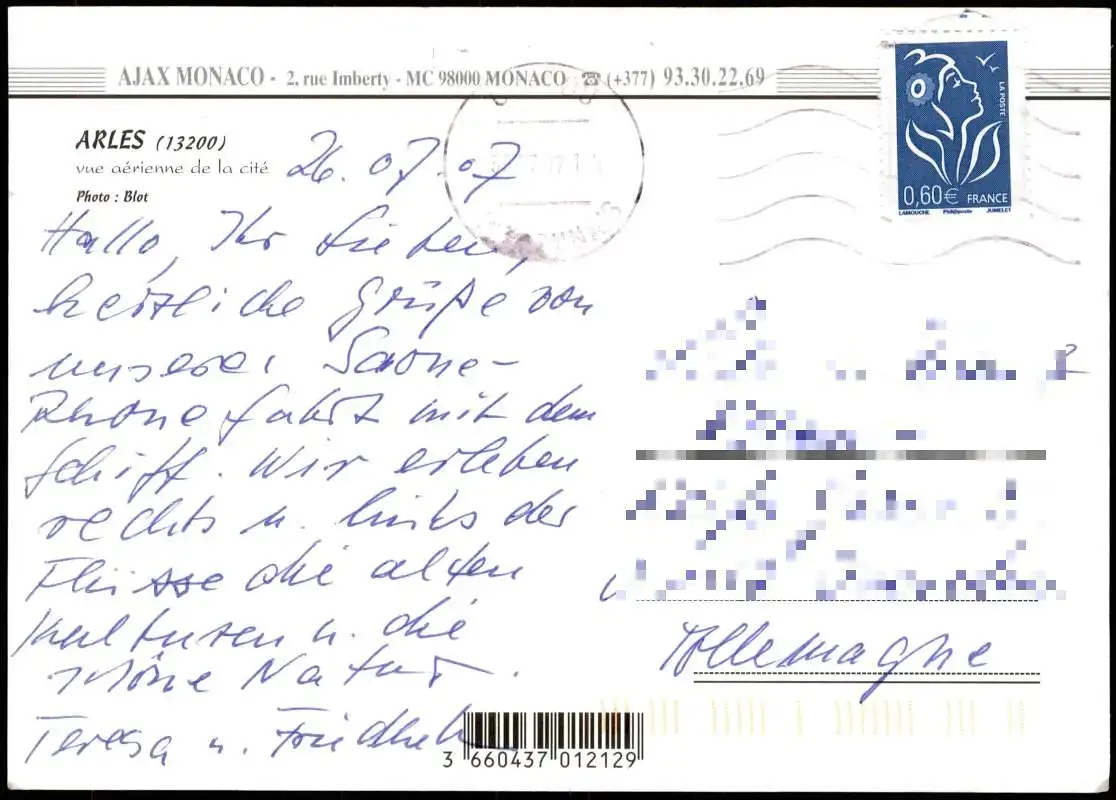 AJAX MONACO - 2, rue Imberty - MC 98000 MONACO ☎ (+377) 93.30.22.69
ARLES (13200)
vue aérienne de la cité
Photo : Blot
26.07.07
Hallo, Ihr Lieben,
herzliche Grüße von
unserer Saone-
Rhonefahrt mit dem
Schiff. Wir erleben
rechts u. links der
Flüsse die alten
Kulturen u. die
schöne Natur.
Teresa u. Friedhelm
LA POSTE
0,60€ FRANCE
LAMOUCHE Phil@poste JUMELET
Allemagne
3 660437 012129